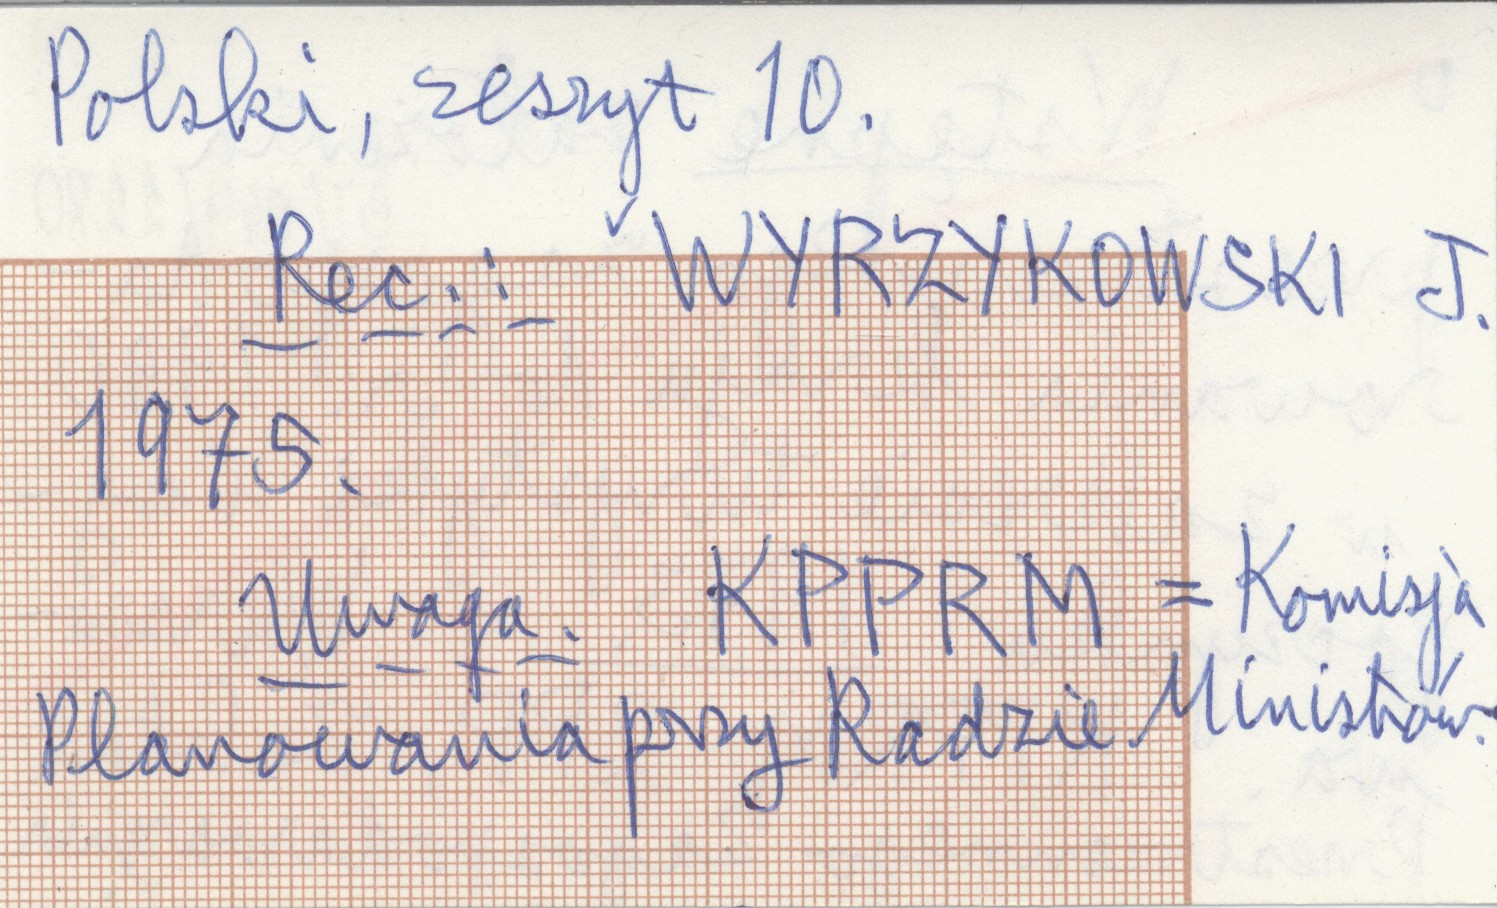 Polski, zeszyt 10.
Rec.: WYRZYKOWSKI J.
1975.
Uwaga. KPPRM = Komisja
Planowania przy Radzie Ministrów.